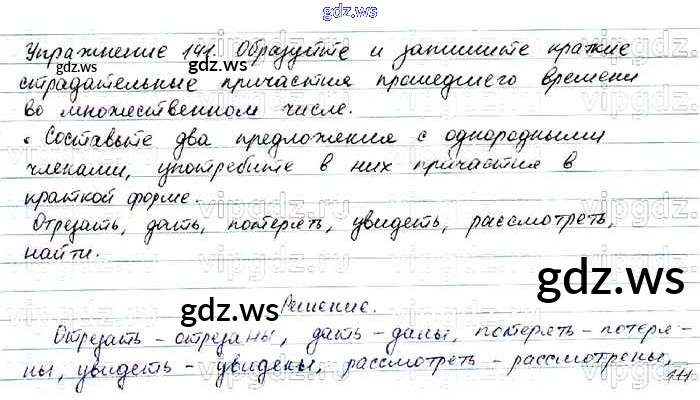 gdz.ws
Упражнение 141. Образуйте и запишите краткие
страдательные причастия прошедшего времени
во множественном числе.
• Составьте два предложения с однородными
членами, употребите в них причастия в
краткой форме.
Отрезать, дать, потерять, увидеть, рассмотреть,
найти.
gdz.ws
gdz.ws
Решение.
Отрезать - отрезаны, дать - даны, потерять - потеря-
ны, увидеть - увидены, рассмотреть - рассмотрены,
111